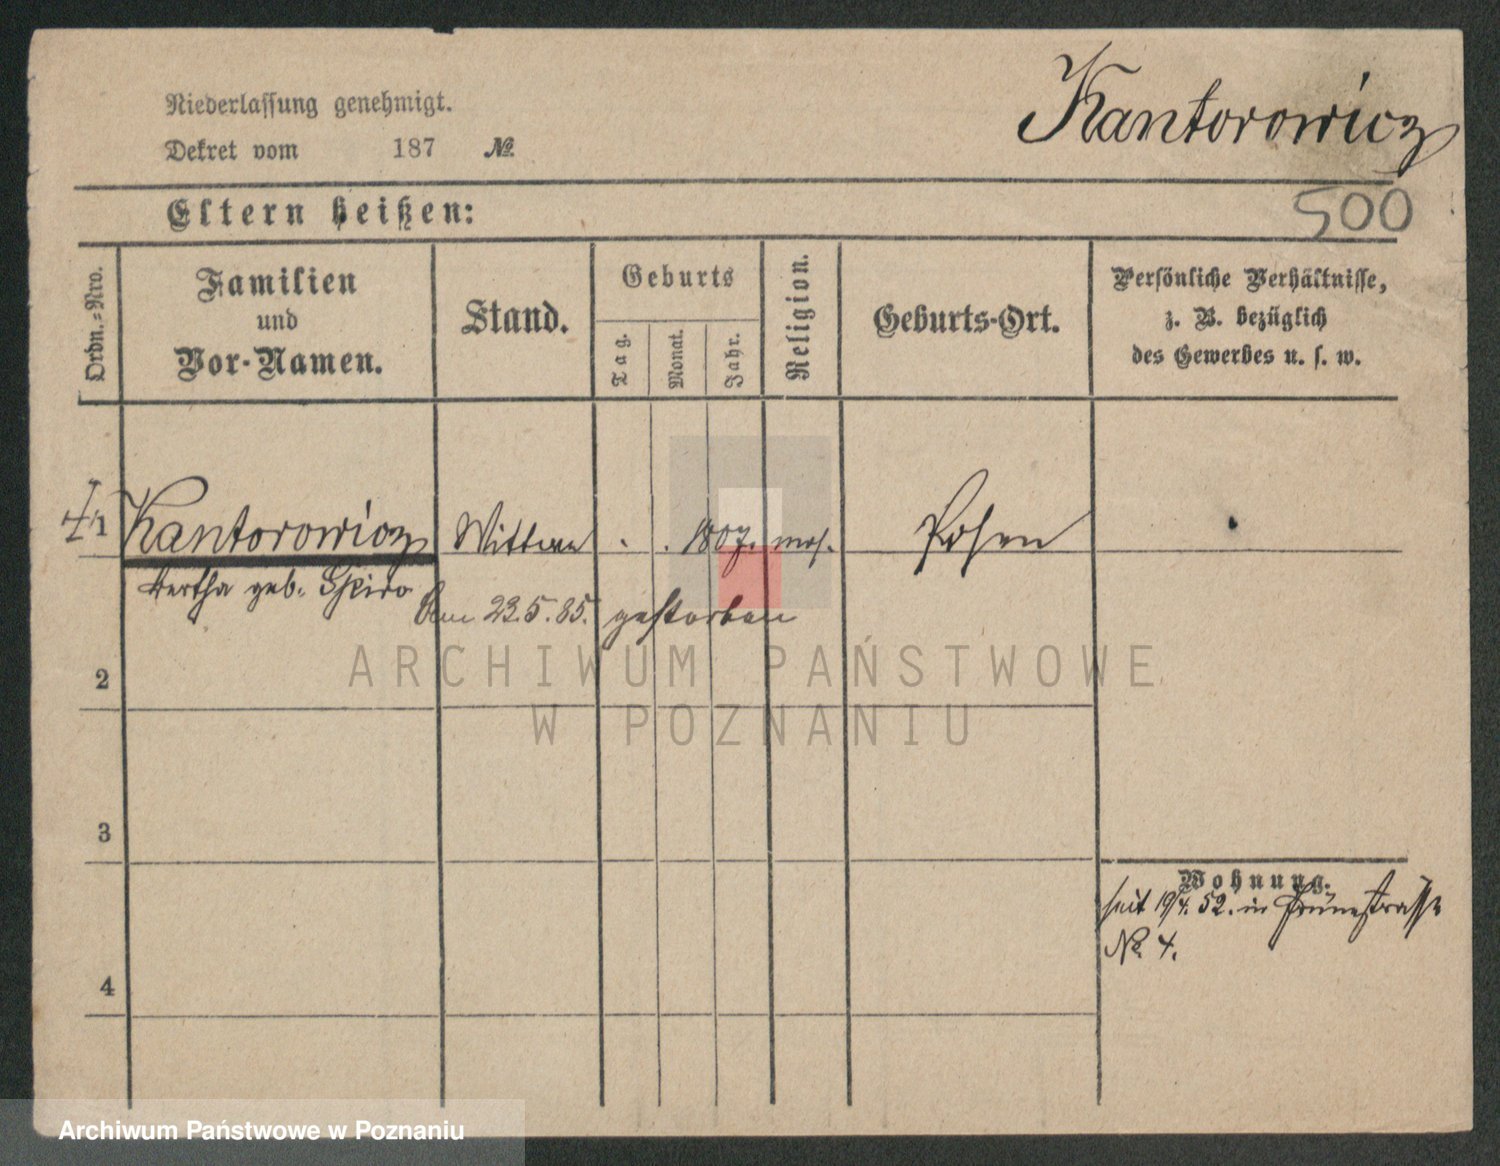 Niederlassung genehmigt.
Kantorowicz
Dekret vom 187 №
500
Eltern heißen:
Ordn.=Nro.
Familien
und
Vor-Namen.
Stand.
Geburts
Tag.
Monat.
Jahr.
Religion.
Geburts-Ort.
Persönliche Verhältnisse,
z. B. bezüglich
des Gewerbes u. s. w.
1
Kantorowicz Wittwe 1807. mos. Posen
Bertha geb. Spiro
am 23.5.85. gestorben
ARCHIWUM PAŃSTWOWE
W POZNANIU
2
3
4
Wohnung.
seit 19/4. 52. in
No. 4.
Archiwum Państwowe w Poznaniu